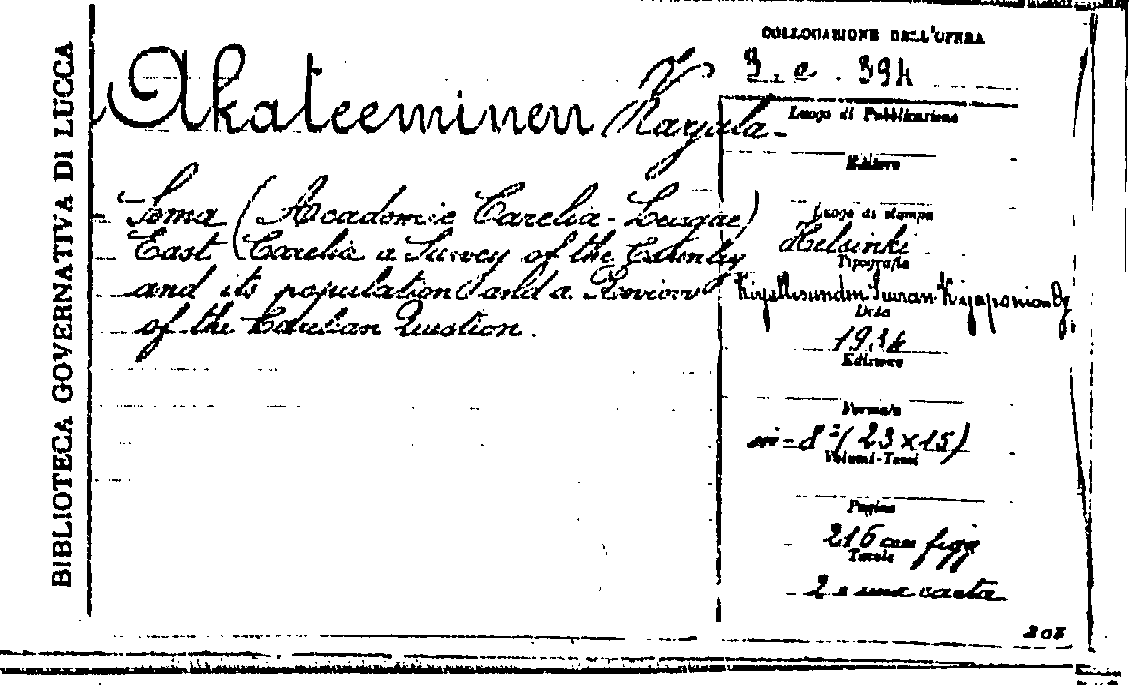 BIBLIOTECA GOVERNATIVA DI LUCCA
COLLOCAZIONE DELL'OPERA
3. e. 394
Akateeminen Karjala-
Soma (Academic Carelia-League)
East Carelia a Survey of the Country
and its population and a Review
of the Carelian Question.
Luogo di Pubblicazione
Editore
Luogo di stampa
Helsinki
Tipografia
Data
1934
Edizione
Formato
in-8° (23×15)
Volumi-Tomi
Pagine
216 con figg
Tavole
2 e una carta